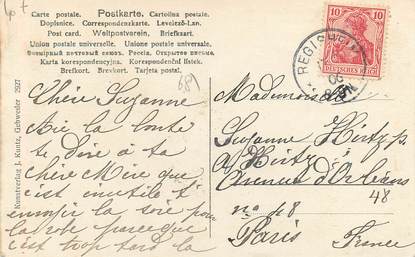 Carte postale. Postkarte. Cartolina postale.
Dopisnice. Correspondenzkarte. Levelező-Lap.
Post card. Weltpostverein. Briefkart.
Union postale universelle. Unione postale universale.
Всемірный почтовый союзъ. Россія. Открытое письмо.
Karta korespondencyjna. Korespondenční lístek.
Brefkort. Brevkort. Tarjeta postal.
10 10
DEUTSCHES REICH
REGISHEIM
Kunstverlag J. Kuntz, Gebweiler 2927
689
Chère Suzanne
Aie la bonté
de Dire à ta
Chère Mère que
c'est inutile d'
envoyer la soie pour
la robe parce que
c'est trop tard la
Mademoiselle
Suzanne Hirtz
Hirtz
Avenue d'Orléans
48
no 48
Paris
France